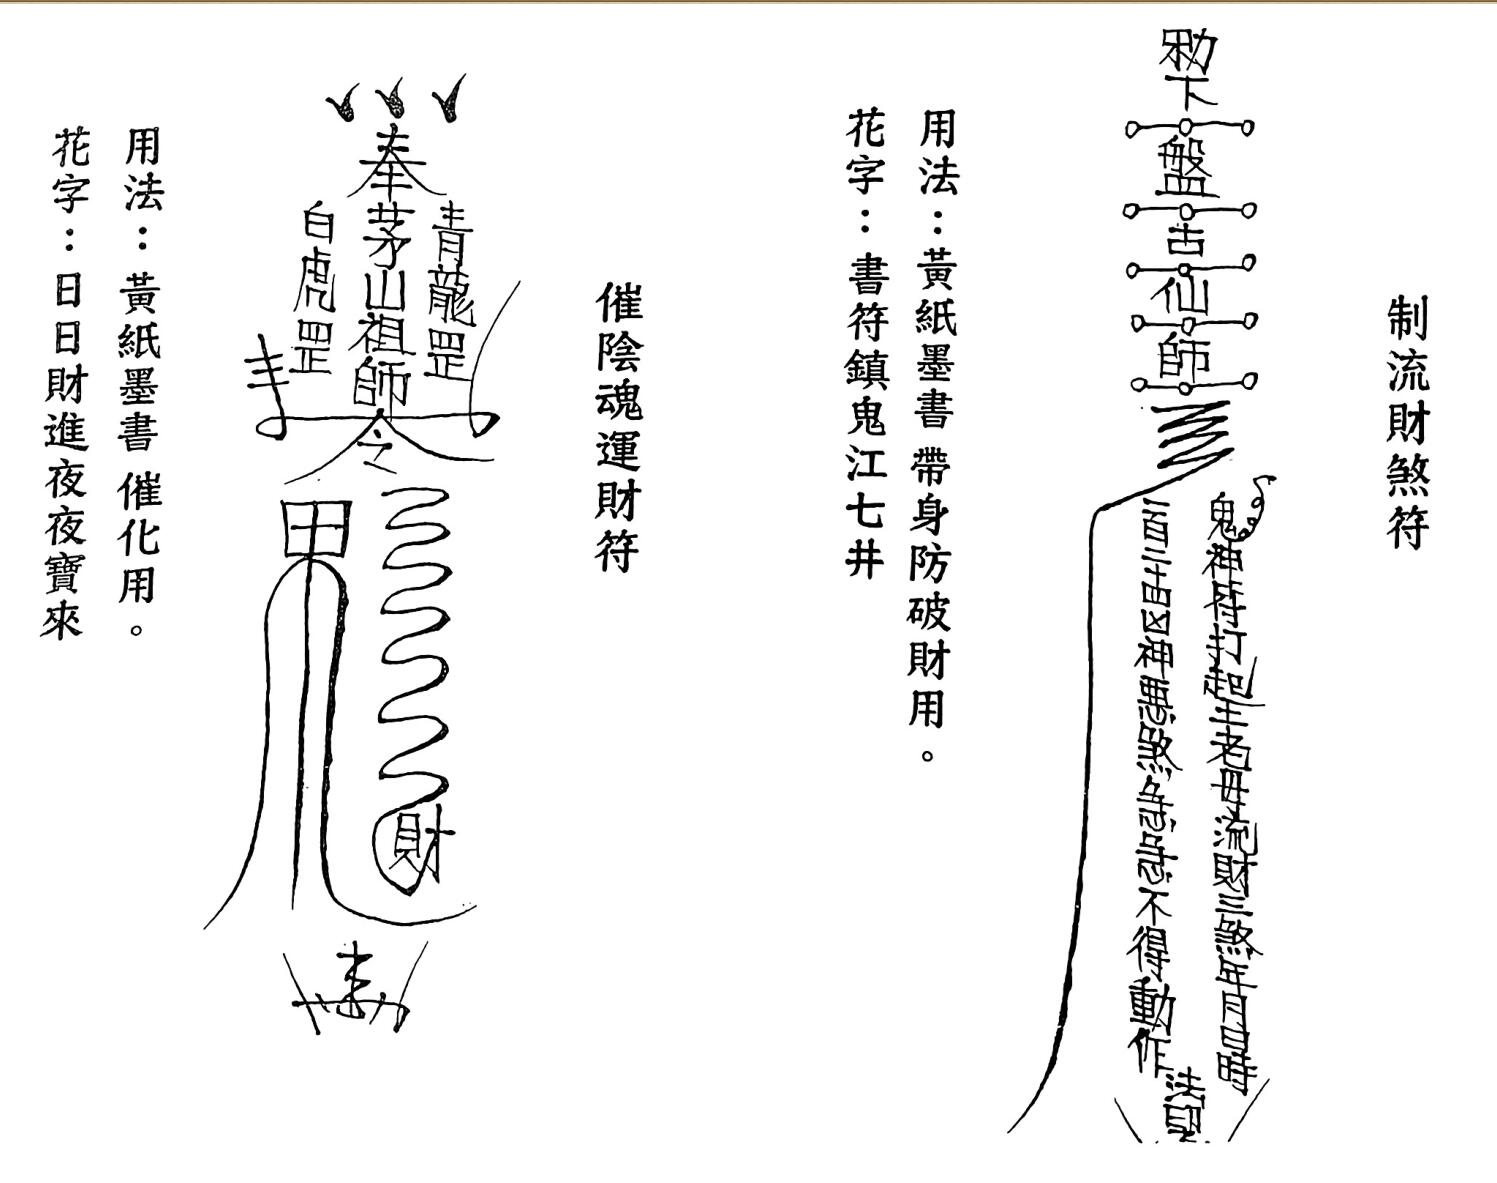 制流財煞符
勅下盤古仙師
鬼神符打起王老母流財三煞年月日時
凶神惡煞急急不得動作
法印
用法：黃紙墨書 帶身防破財用。
花字：書符鎮鬼江七井
催陰魂運財符
奉茅山祖師令
青龍罡
白虎罡
財
用法：黃紙墨書 催化用。
花字：日日財進夜夜寶來